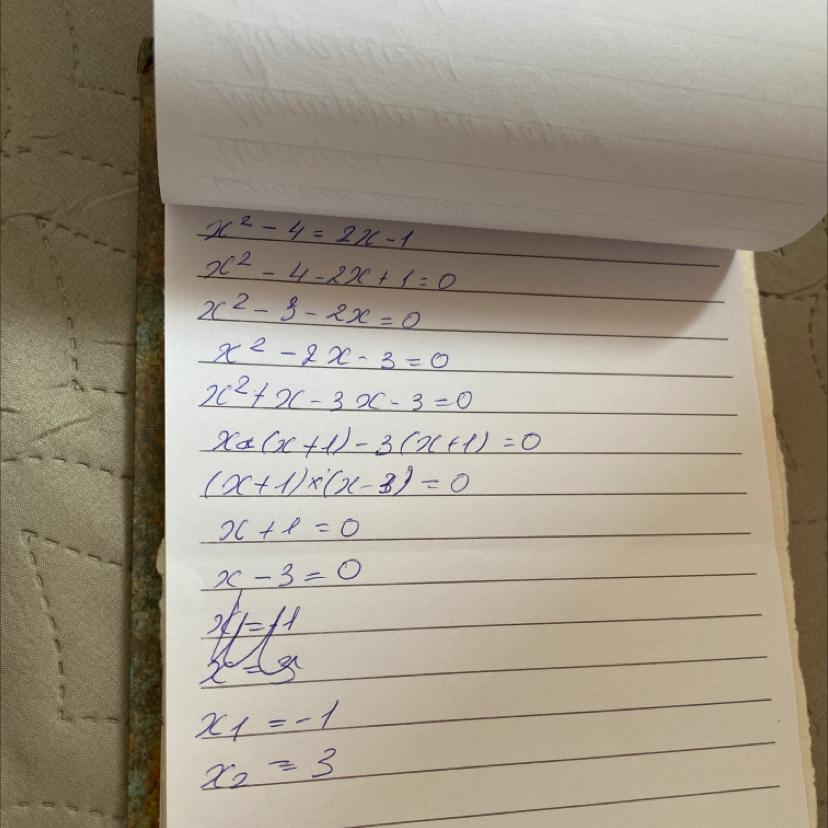 x² - 4 = 2x - 1
x² - 4 - 2x + 1 = 0
x² - 3 - 2x = 0
x² - 2x - 3 = 0
x² + x - 3x - 3 = 0
x(x + 1) - 3(x + 1) = 0
(x + 1)×(x - 3) = 0
x + 1 = 0
x - 3 = 0
x1 = -1
x2 = 3